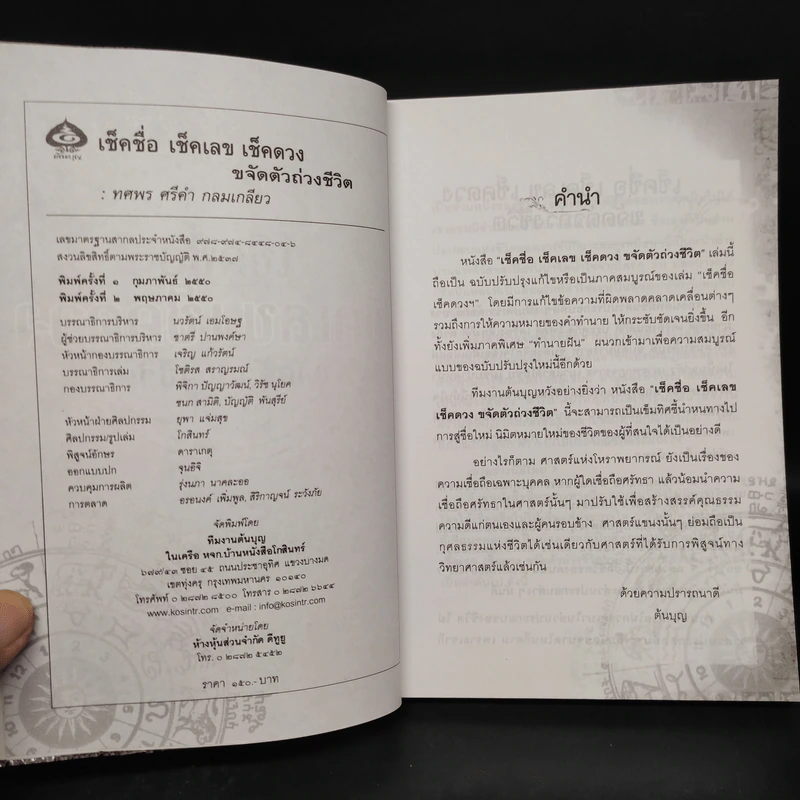 ต้นบุญ
เช็คชื่อ เช็คเลข เช็คดวง
ขจัดตัวถ่วงชีวิต
: ทศพร ศรีคำ กลมเกลียว
เลขมาตรฐานสากลประจำหนังสือ ๙๗๘-๙๗๔-๘๔๔๘-๐๔-๖
สงวนลิขสิทธิ์ตามพระราชบัญญัติ พ.ศ.๒๕๓๗
พิมพ์ครั้งที่ ๑ กุมภาพันธ์ ๒๕๕๐
พิมพ์ครั้งที่ ๒ พฤษภาคม ๒๕๕๐
บรรณาธิการบริหาร นวรัตน์ เอมโอษฐ
ผู้ช่วยบรรณาธิการบริหาร ชาตรี ปานพงศ์ษา
หัวหน้ากองบรรณาธิการ เจริญ แก้วรัตน์
บรรณาธิการเล่ม โชติรส สราญรมณ์
กองบรรณาธิการ พิจิกา ปัญญาวัฒน์, วิรัช นุโยค
ชนก สามิติ, บัญญัติ พันสุรีย์
หัวหน้าฝ่ายศิลปกรรม ยุพา แจ่มสุข
ศิลปกรรม/รูปเล่ม โกสินทร์
พิสูจน์อักษร ดาราเกตุ
ออกแบบปก จุนอิจิ
ควบคุมการผลิต รุ่งนภา นาคละออ
การตลาด อรอนงค์ เพิ่มพูล, สิริกาญจน์ ระวังภัย
จัดพิมพ์โดย
ทีมงานต้นบุญ
ในเครือ หจก.บ้านหนังสือโกสินทร์
๖๗๙/๔๓ ซอย ๔๕ ถนนประชาอุทิศ แขวงบางมด
เขตทุ่งครุ กรุงเทพมหานคร ๑๐๑๔๐
โทรศัพท์ ๐ ๒๘๗๒ ๘๕๐๐ โทรสาร ๐ ๒๘๗๒ ๖๖๔๔
www.kosintr.com e-mail : info@kosintr.com
จัดจำหน่ายโดย
ห้างหุ้นส่วนจำกัด ดีทูยู
โทร. ๐ ๒๘๗๒ ๕๔๕๒
ราคา ๑๕๐.- บาท
คำนำ
หนังสือ “เช็คชื่อ เช็คเลข เช็คดวง ขจัดตัวถ่วงชีวิต” เล่มนี้
ถือเป็น ฉบับปรับปรุงแก้ไขหรือเป็นภาคสมบูรณ์ของเล่ม “เช็คชื่อ
เช็คดวงฯ” โดยมีการแก้ไขข้อความที่ผิดพลาดคลาดเคลื่อนต่างๆ
รวมถึงการให้ความหมายของคำทำนาย ให้กระชับชัดเจนยิ่งขึ้น อีก
ทั้งยังเพิ่มภาคพิเศษ “ทำนายฝัน” ผนวกเข้ามาเพื่อความสมบูรณ์
แบบของฉบับปรับปรุงใหม่นี้อีกด้วย
ทีมงานต้นบุญหวังอย่างยิ่งว่า หนังสือ “เช็คชื่อ เช็คเลข
เช็คดวง ขจัดตัวถ่วงชีวิต” นี้จะสามารถเป็นเข็มทิศชี้นำหนทางไป
การสู่ชื่อใหม่ นิมิตหมายใหม่ของชีวิตของผู้ที่สนใจได้เป็นอย่างดี
อย่างไรก็ตาม ศาสตร์แห่งโหราพยากรณ์ ยังเป็นเรื่องของ
ความเชื่อถือเฉพาะบุคคล หากผู้ใดเชื่อถือศรัทธา แล้วน้อมนำความ
เชื่อถือศรัทธาในศาสตร์นั้นๆ มาปรับใช้เพื่อสร้างสรรค์คุณธรรม
ความดีแก่ตนเองและผู้คนรอบข้าง ศาสตร์แขนงนั้นๆ ย่อมถือเป็น
กุศลธรรมแห่งชีวิตได้เช่นเดียวกับศาสตร์ที่ได้รับการพิสูจน์ทาง
วิทยาศาสตร์แล้วเช่นกัน
ด้วยความปรารถนาดี
ต้นบุญ